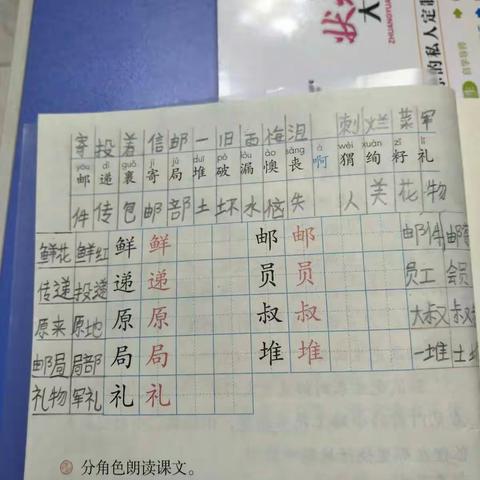 状
大
ZHUANGYUAN
的私人定
自学导师
寄 投 着 信 邮 一 旧 悔 沮 刺 烂 菜 军
yóu dì guǒ jì jú duī pò lòu ào sàng á wèi xuàn zǐ lǐ
邮 递 裹 寄 局 堆 破 漏 懊 丧 啊 猬 绚 籽 礼
件 传 包 邮 部 土 坏 水 恼 失 人 美 花 物
鲜花 鲜红 鲜 鲜 邮 邮 邮件 邮
传递 投递 递 递 员 员 员工 会员
原来 原地 原 原 叔 叔 大叔 叔
邮局 局部 局 局 堆 堆 一堆 土
礼物 军礼 礼 礼
分角色朗读课文。